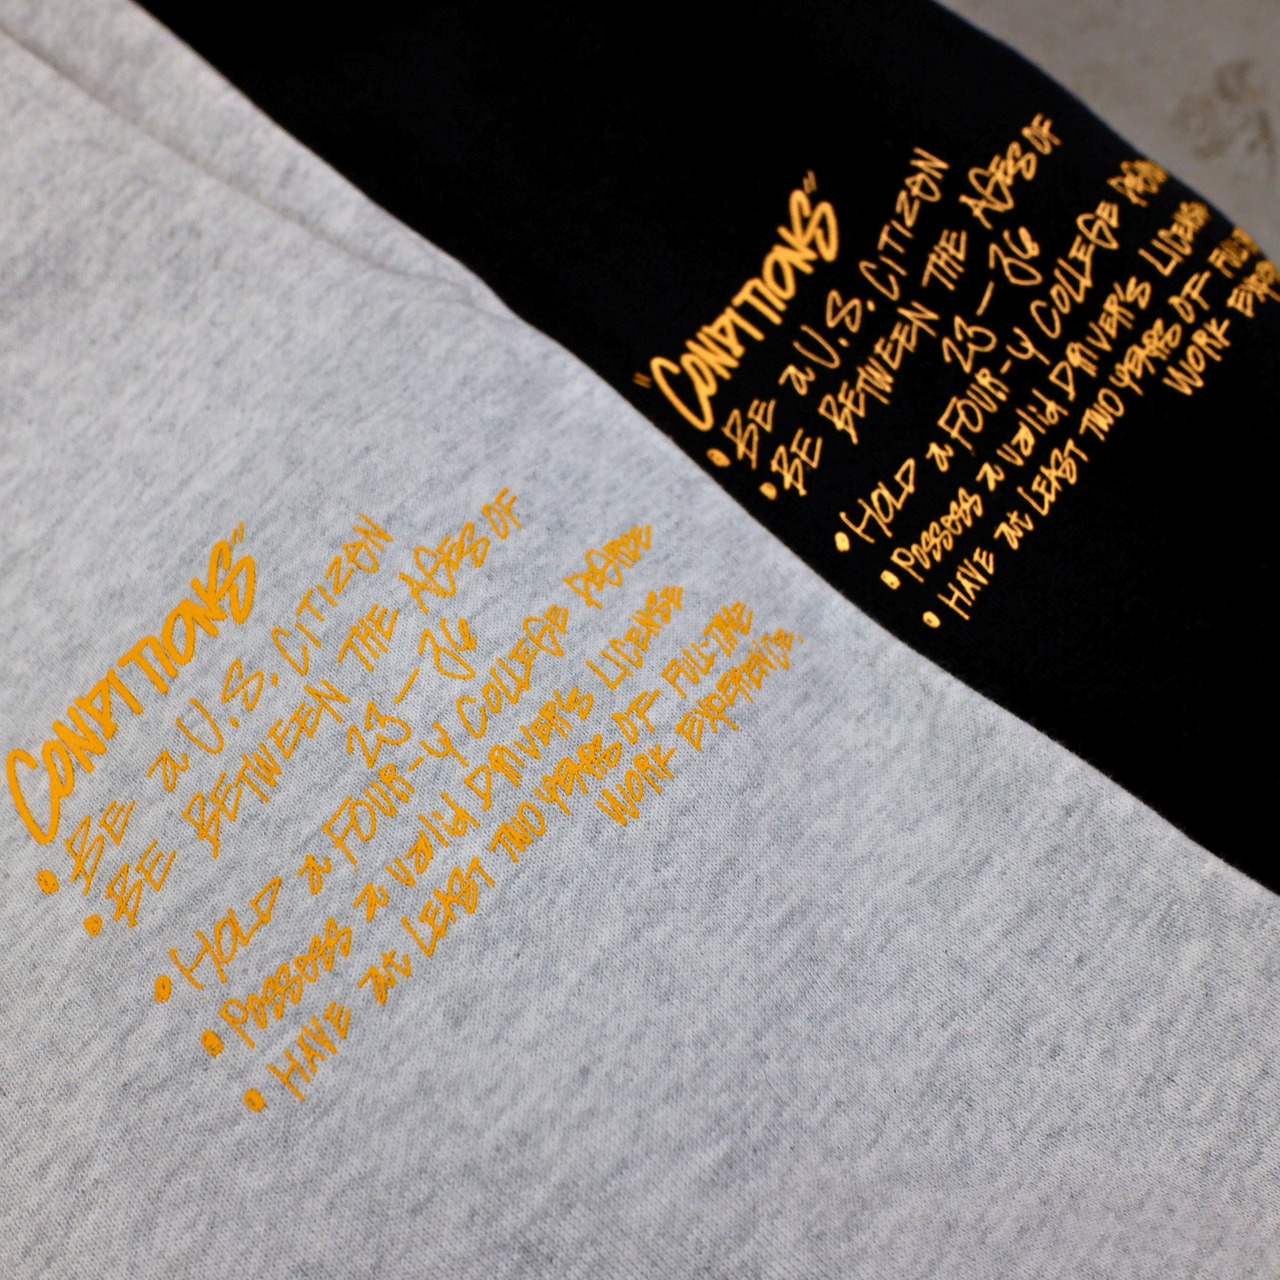 CONDITIONS"
• BE a U.S. CITIZEN
• BE BETWEEN THE AGES OF
23 — 36
• HOLD a FOUR-Y COLLEGE DEGREE
• POSSESS a valid DRIVER'S LICENSE
• HAVE at LEAST TWO YEARS OF FULL-TIME
WORK EXPERIENCE.
"CONDITIONS"
• BE a U.S. CITIZEN
• BE BETWEEN THE AGES OF
23 — 36
• HOLD a FOUR-Y COLLEGE
• POSSESS a valid DRIVER'S LICENS
• HAVE at LEAST TWO YEARS OF
WORK